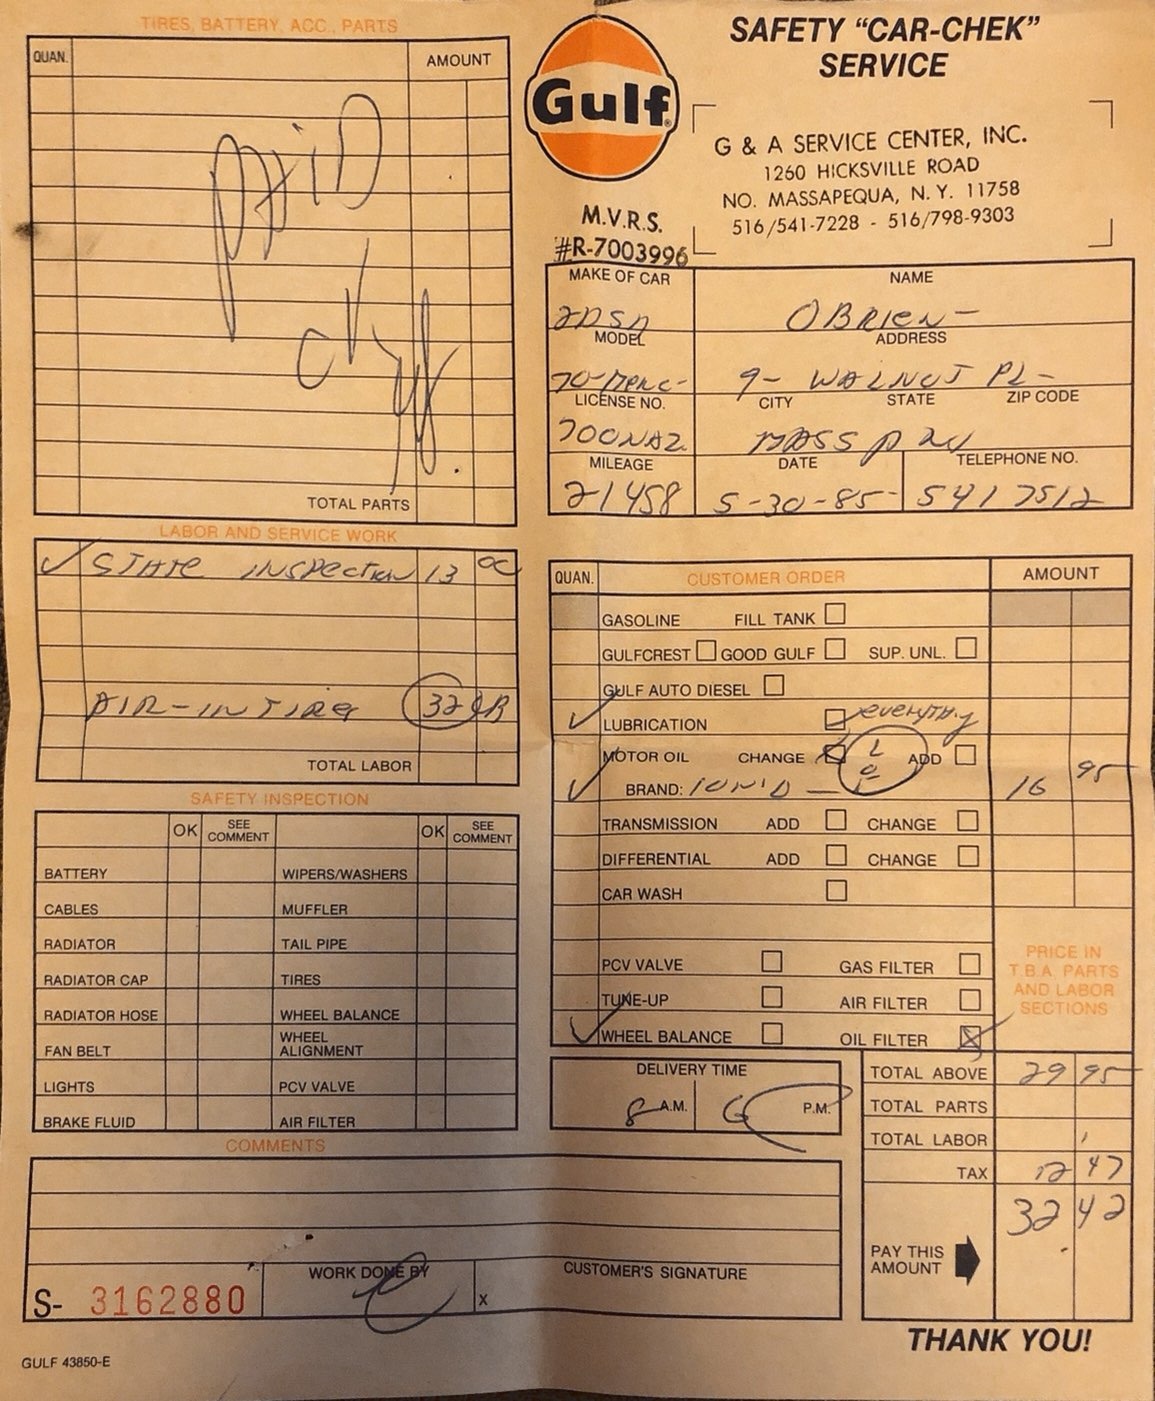 TIRES, BATTERY, ACC., PARTS
QUAN. AMOUNT
PAID
TOTAL PARTS
LABOR AND SERVICE WORK
✓ STATE INSPECTION 13 00
AIR-IN TIRES 32
TOTAL LABOR
SAFETY INSPECTION
OK SEE COMMENT OK SEE COMMENT
BATTERY WIPERS/WASHERS
CABLES MUFFLER
RADIATOR TAIL PIPE
RADIATOR CAP TIRES
RADIATOR HOSE WHEEL BALANCE
FAN BELT WHEEL ALIGNMENT
LIGHTS PCV VALVE
BRAKE FLUID AIR FILTER
COMMENTS
S- 3162880
WORK DONE BY
x
CUSTOMER'S SIGNATURE
GULF 43850-E
Gulf
SAFETY "CAR-CHEK"
SERVICE
G & A SERVICE CENTER, INC.
1260 HICKSVILLE ROAD
NO. MASSAPEQUA, N. Y. 11758
516/541-7228 - 516/798-9303
M.V.R.S.
#R-7003996
MAKE OF CAR NAME
2DSD OBRIEN-
MODEL ADDRESS
70-MERC- 9- WALNUT PL-
LICENSE NO. CITY STATE ZIP CODE
700NAZ MASS P
MILEAGE DATE TELEPHONE NO.
21458 5-30-85 541 7512
QUAN. CUSTOMER ORDER AMOUNT
GASOLINE FILL TANK
GULFCREST GOOD GULF SUP. UNL.
GULF AUTO DIESEL
✓ LUBRICATION everything
MOTOR OIL CHANGE L O F ADD
✓ BRAND: 10W'D 16 95
TRANSMISSION ADD CHANGE
DIFFERENTIAL ADD CHANGE
CAR WASH
PCV VALVE GAS FILTER
TUNE-UP AIR FILTER
✓ WHEEL BALANCE OIL FILTER
PRICE IN
T.B.A. PARTS
AND LABOR
SECTIONS
DELIVERY TIME
8 A.M. 6 P.M.
TOTAL ABOVE 29 95
TOTAL PARTS
TOTAL LABOR
TAX 47
PAY THIS AMOUNT 32 42
THANK YOU!